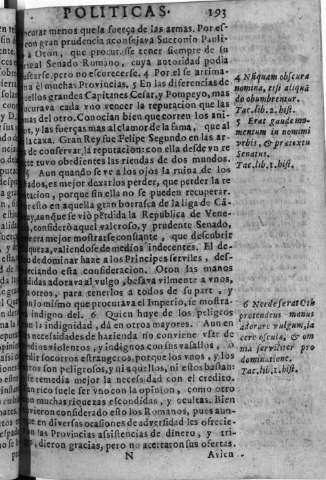 POLITICAS. 193
curar menos que la fuerça de las armas. Por es-
con gran prudencia aconsejava Suetonio Pauli-
à Oton, que procurasse tener siempre de su
real Senado Romano, cuya autoridad podia
starse, pero no escorecerse. 4 Por el se arrima-
n muchas Provincias. 5 En las diferencias de
ellos grandes Capitanes Cesar, y Pompeyo, mas
curava cada vno vencer la reputacion que las
mas del otro. Conocian bien que corren los ani-
y las fuerças mas al clamor de la fama, que al
la caxa. Gran Rey fue Felipe Segundo en las ar-
de conservar la reputacion: con ella desde vn re
te tuvo obedientes las riendas de dos mundos.
Aun quando se ve à los ojos la ruina de los
ados, es mejor dexarlos perder, que perder la re
tacion, porque sin ella no se pueden recuperar.
esto en aquella gran borrasca de la liga de Cã-
ay, aunque se viò pèrdida la Republica de Vene-
consideró aquel valeroso, y prudente Senado,
era mejor mostrarse constante, que descubrir
queza, valiendose de medios indecentes. El de-
de dominar haze à los Principes serviles, des-
eciando esta consideracion. Oton las manos
didas adorava al vulgo, besava vilmente a vnos,
otros, para tenerlos à todos de su parte, y
n lo mismo que procurava el Imperio, se mostra-
indigno del. 6 Quien huye de los peligros
n la indignidad, dà en otros mayores. Aun en
necesidades de hazienda no conviene vsar de
dios violentos, y indignos con sus vasallos, ò
dir socorros estrangeros, porque los vnos, y los
os son peligrosos, y ni aquellos, ni estos bastan:
se remedia mejor la necesidad con el credito.
an rico suele ser vno con la opinion, como otro
n muchas riquezas escondidas, y ocultas. Bien
vieron considerado esto los Romanos, pues aun-
e en diversas ocasiones de adversidad les ofrecie-
las Provincias assistencias de dinero, y tri-
dieron gracias, pero no aceptaron sus ofertas.
N Avien
4 Nũquam obscura
nomina, etsi aliquã
do obumbrentur.
Tac. lib. 2. hist.
5 Erat grande mo-
mentum in nomine
vrbis, & prætextu
Senatus.
Tac. lib. 1. hist.
6 Nec deerat Otho
protendens manus
adorare vulgum, ia
cere oscula, & om
nia serviliter pro
dominatione.
Tac. lib. 1. hist.